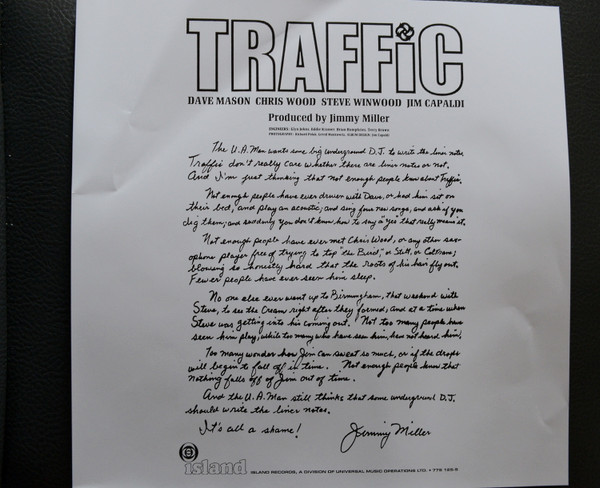 TRAFFiC
DAVE MASON CHRIS WOOD STEVE WINWOOD JIM CAPALDI
Produced by Jimmy Miller
ENGINEERS: Glyn Johns, Eddie Kramer, Brian Humphries, Terry Brown
The U.A. Man wants some big underground D.J. to write the liner notes.
Traffic don't really care whether there are liner notes or not.
And I'm just thinking that not enough people know about Traffic.
Not enough people have ever driven with Dave, or had him sit on
their bed, and play an acoustic, and sing four new songs, and ask if you
dig them, and suddenly you don't know how to say a "yes" that really means it.
Not enough people have ever met Chris Wood, or any other sax-
ophone player free of trying to top "the Bird," or Stitt, or Coltrane;
blowing so honestly hard that the roots of his hair fly out.
Fewer people have ever seen him sleep.
No one else ever went up to Birmingham, that weekend with
Steve, to see the Cream right after they formed, and at a time when
Steve was getting into his coming out. Not too many people have
seen him play, while too many who have seen him, have not heard him.
Too many wonder how Jim can sweat so much, or if the drops
will begin to fall off in time. Not enough people know that
nothing falls off of Jim out of time.
And the U.A. Man still thinks that some underground D.J.
should write the liner notes.
It's all a shame!
Jimmy Miller
island
ISLAND RECORDS, A DIVISION OF UNIVERSAL MUSIC OPERATIONS LTD. • 779 125-5